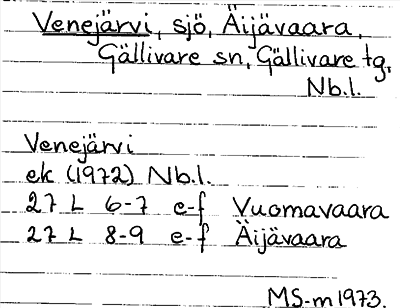 Venejärvi, sjö, Äijävaara,
Gällivare sn, Gällivare tg,
Nb.l.
Venejärvi
ek (1972) Nb.l.
27 L 6-7 e-f Vuomavaara
27 L 8-9 e-f Äijävaara
MS-m 1973.